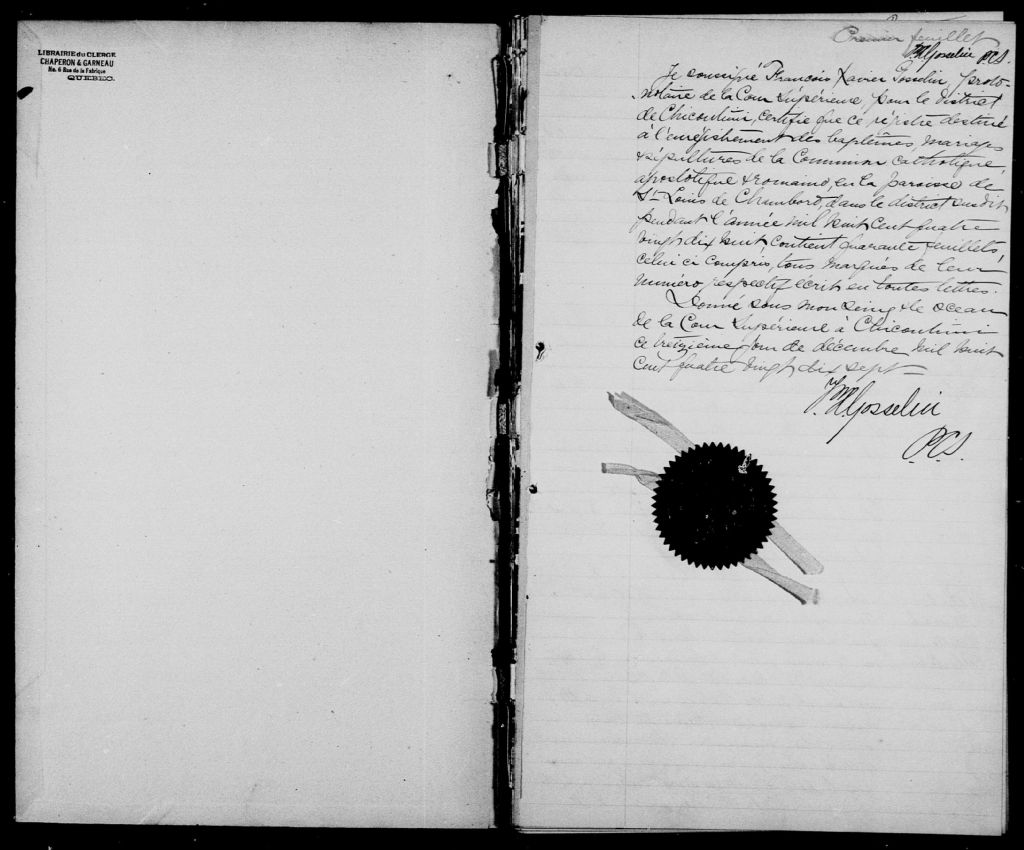 LIBRAIRIE du CLERGE
CHAPERON & GARNEAU
No. 6 Rue de la Fabrique
QUEBEC.
Premier feuillet
FX Gosselin P.C.S.
Je soussigné François Xavier Gosselin, proto-
notaire de la Cour Supérieure, pour le district
de Chicoutimi, certifie que ce régistre destiné
à l'enrégistrement des baptêmes, mariages
& sépultures de la Communion catholique,
apostolique & romaine, en la paroisse de
St Louis de Chambord, dans le district susdit
pendant l'année mil huit cent quatre
vingt dix huit, contient quarante feuillets,
celui ci compris, tous marqués de leur
numéro respectif écrit en toutes lettres.
Donné sous mon seing & le sceau
de la Cour Supérieure à Chicoutimi
ce treizième jour de décembre mil huit
cent quatre vingt dix sept
F. X. Gosselin
P.C.S.